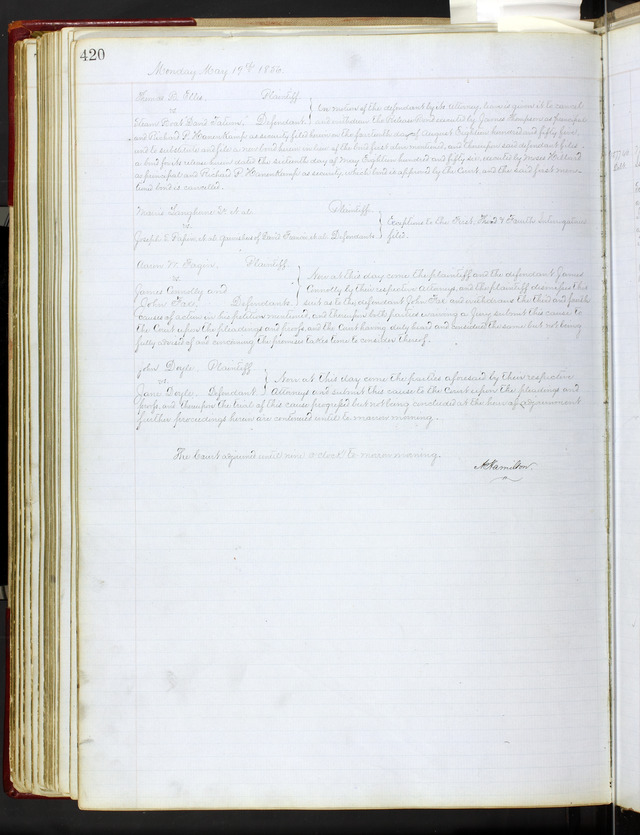 420
Monday May 19th 1856.
Plaintiff
vs
On motion of the defendant by its Attorney, leave is given it to cancel
Steam Boat David Tatum, Defendant
and withdraw the Release Bond executed by James Thompson as principal
and Richard P. Hanenkamp as security filed herein on the fourteenth day of August Eighteen hundred and fifty five,
and to substitute and file a new bond herein in lieu of the bond first above mentioned, and thereupon said defendant files
a bond for its release herein dated the sixteenth day of May Eighteen hundred and fifty six, executed by Moses
as principal and Richard P. Hanenkamp as security, which bond is approved by the Court, and the said first men-
tioned bond is cancelled.
et al Plaintiff
vs
Exceptions to the First, Third & Fourth Interrogatories
Joseph S. Papin et al garnishees of et al Defendants
filed.
Aaron W. Fagin, Plaintiff
vs
Now at this day come the plaintiff and the defendant James
James Connolly and
Connolly by their respective Attorneys, and the plaintiff dismisses this
John Fox, Defendants
suit as to the defendant John Fox and withdraws the third and fourth
causes of action in his petition mentioned, and thereupon both parties waiving a Jury submit this cause to
the Court upon the pleadings and proofs and the Court having duly heard and considered the same but not being
fully advised of and concerning the premises takes time to consider thereof.
John Doyle Plaintiff
vs
Now at this day come the parties aforesaid by their respective
Jane Doyle. Defendant
Attorneys and submit this cause to the Court upon the pleadings and
proofs, and thereupon the trial of this cause progressed but not being concluded at the hour of adjournment
further proceedings herein are continued until to morrow morning.
The Court adjourned until nine o'clock to morrow morning.
A Hamilton